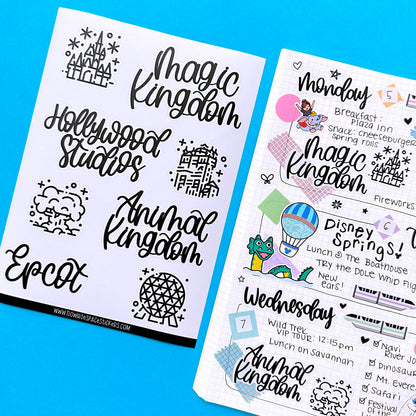 Magic
Kingdom
Hollywood
Studios
Animal
Kingdom
Epcot
Monday
5
Breakfast:
Plaza Inn
Snack: cheeseburger
spring rolls
Magic
Kingdom
Fireworks
6
Disney
Springs!
Lunch @ The Boathouse
Try the Dole Whip Flig
New
ears!
Wednesday
7
Wild Trek
VIP Tour: 12:15pm
Lunch on Savannah
Animal
Kingdom
Navi
River J
Dinosaur
Mt. Evere
Safari
Festival